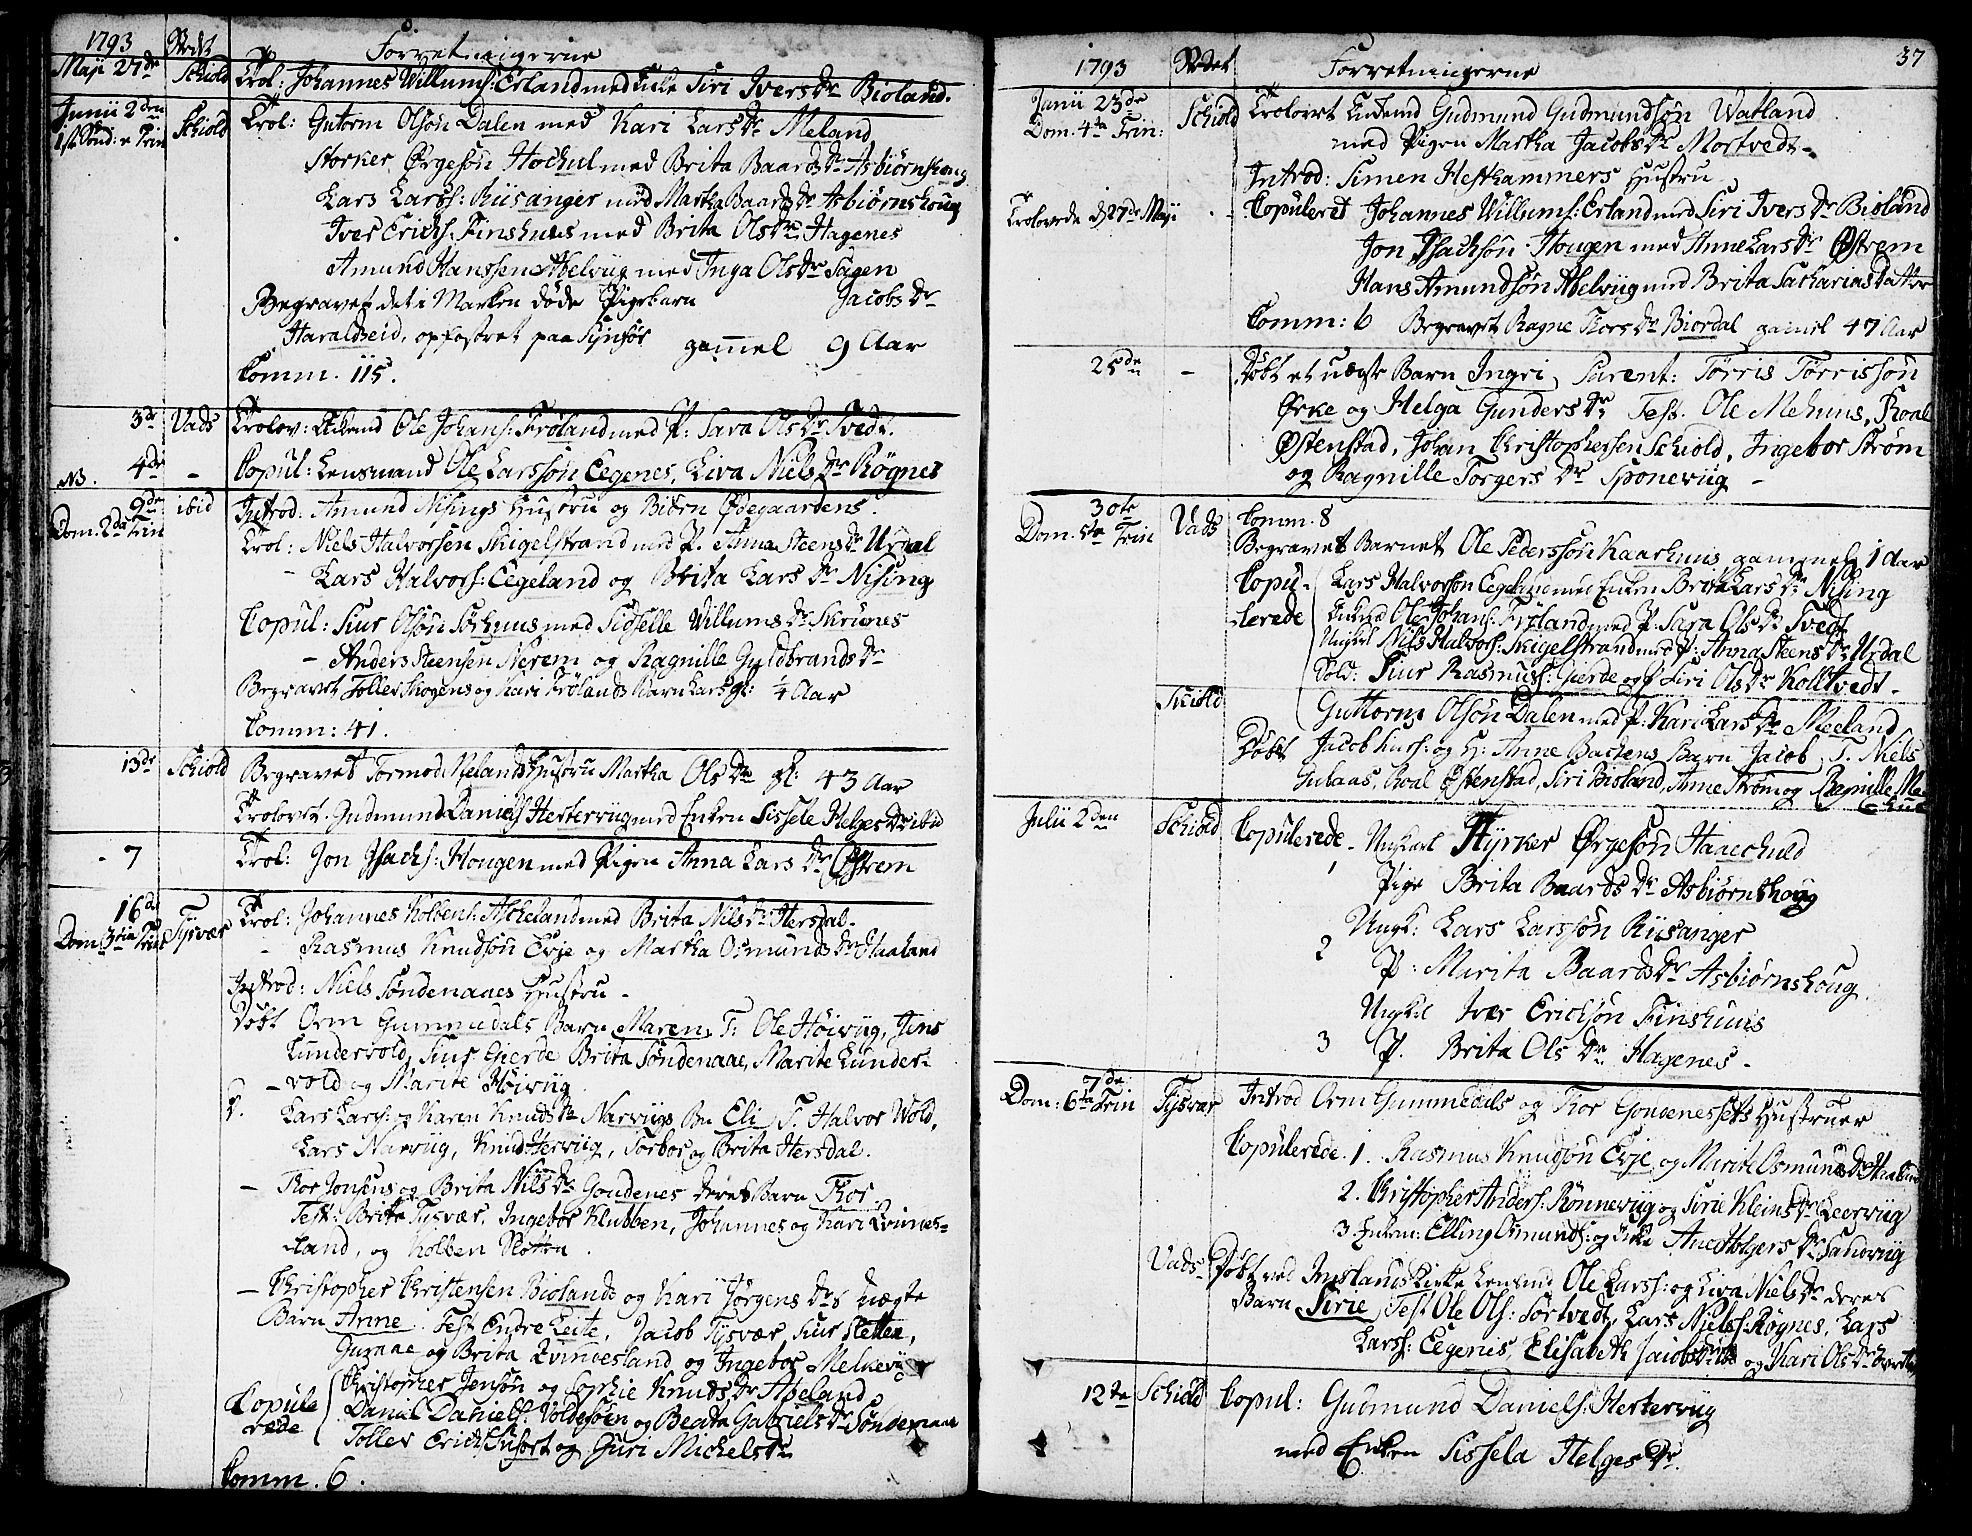 1793 Stedet Forretningerne
Maji 27de Schiold Trol: Johannes Willums: Erland med Enke Siri Ivers Dr Bioland.
Junii 2den Schiold Trol: Gutorm Olsøn Dalen med Kari Lars Dr Meland
1ste Sønd: e Trin
Storker Ørgesøn med Brita Baards Dr Asbiørnshoug
Lars Larss: Riisanger med Martha Baards Dr Asbiørnshoug
Iver Ericks: Finshuus med Brita Ols Dr Hagenes
Amund Hanssen Abelviig med Inga Ols Dr Sagen
Begravet det i Marken døde Pigebarn Jacobs Dr
Haraldseid, opfostret paa gammel 9 Aar
Comm. 115.
3de Vads Trolov: Enkemd Ole Johans: Frøland med P: Sara Ols Dr Tvedt.
NB. 4de - Copul: Lensmand Ole Larssøn Eegenes, Liva Niels Dr Røgnes
9de ibid Introd: Amund Nisings Hustru og Biørn Ødegaardens.
Dom. 2da Trin
Trol: Niels Halvorsen Skigelstrand med P. Anna Steens Dr Urdal
- Lars Halvors: Eegeland og Brita Lars Dr Nising
Copul: Siur Olsøn Sørhuus med Sidselle Willums Dr Skrunes
- Anders Steensen Nerem og Ragnille Gyldbrands Dr
Begravet Tollef Skogens og Kari Frølands Barn Lars gl: ¼ Aar
Comm: 41.
13de Schiold Begravet Tormod Melands Hustru Martha Ols Dr gl: 43 Aar
Trolovet. Gudmund Daniels Hertervig med Enken Sissele Helges Dr ibid
- 7 Trol: Jon Isachs: Hougen med Pigen Anna Lars Dr Østrem
16de Tysvær Trol: Johannes Kolbens: Askeland med Brita Nils Dr Hersdal.
Dom. 3tia Trin
- Rasmus Knudsøn Evje og Martha Osmunds Dr Haaland
Introd: Niels Søndenaaes Hustru -
Døbt Orm Gummedals Barn Maren, T: Ole Høiviig, Jens
Lundervold, Siur Gierde Brita Søndenaae, Marite Lunder-
- vold og Marite Høiviig
D. Lars Lars: og Karen Knuds Dr Narviigs Bn Eli, T. Halvor Wold,
Lars Narviig, Knud Herviig, Torbor og Brita Hersdal.
- Thor Jonsens og Brita Nils Dr Goudenes deres Barn Thor.
Test: Brita Tysvær, Ingebor Klubben, Johannes og Kari Qvines-
land, og Kolben Slotten.
- Christopher Christensen Biolands og Kari Jørgens Drs uægte
Barn Anne. Test Endre Leite, Jacob Tysvær, Siur Sletten,
og Brita Qvinnesland og Ingebor Melkeviig
Copule rede
Christopher Jensøn og Sophie Knuds Dr Aseland
Daniel Daniels: Voldesøen og Beata Gabriels Dr Søndenaae
Tollev Ericks og Guri Michels Dr
Comm. 6.
1793 Stedet Forretningerne 37
Junii 23de Schiold Trolovet Enkemd Gudmund Gudmundsøn Watland
Dom. 4ta Trin:
med Pigen Martha Jacobs Dr Mortvedt.
Introd: Simen Hesthammers Hustru
Trolovede d 27de Maji - Copuleret Johannes Willums: Erland med Siri Ivers Dr Bioland
Jon Isachsøn Hougen med Anne Lars Dr Østrem
Hans Amundsøn Abelviig med Brita Sacharias Datter
Comm: 6 Begravet Ragne Thors Dr Biordal gamel 47 Aar
25de - Døbt et uægte Barn Ingri, Parent: Tørris Tørrissøn
Ørke og Helga Gunders Dr Test. Ole Mehuus, Roal
Østenstad, Johan Christophersen Schiold, Ingebor Strøm
og Ragnille Torgers Dr Sponeviig -
30te Vads Comm. 8
Dom. 5ta Trin
Begravet Barnet Ole Pederssøn Kaarhuus gammel 1 Aar
Copu- lerede
Lars Halvorsøn Eegeland med Enken Brita Lars Dr Nising
Enkemd Ole Johans: Frøland med P. Sara Ols Dr Tvedt
Ungkl Nils Halvors: Skigelstrand med P: Anna Steens Dr Urdal
Sold: Siur Rasmus: Gierde og P Siri Ols Dr Kolltvedt.
Schiold Guttorm Olsøn Dalen med P: Kari Lars Dr Meeland
Døbt Jacob Kuss: og H: Anne Bachens Barn Jacob, T. Niels
Gulaas, Roal Østenstad, Siri Bioland, Anne Strøm og Ragnille Me-
huus
Julii 2den Schiold Copulerede - Ungkarl Styrker Ørgesøn
1 Pige Brita Baards Dr Asbiørnshoug
Ungk: Lars Larssøn Riisanger
2 P: Marita Baards Dr Asbiørnshoug.
Ungkl Iver Ericksøn Finshuus
3 P. Brita Ols Dr Hagenes -
7de Tysvær Introd Orm Gummedals og Thor Goudenes Hustruer
Dom: 6ta Trin
Copulerede. 1. Rasmus Knudsøn Evje og Marite Osmunds Dr Haaland
2. Christopher Anders: Rønneviig og Sirie Kleins Dr Leerviig
3. Enkem: Elling Osmunds: og Enke Ane Holgers Dr Sandviig
Vads Døbt ved Imslands Kirke Lensmd Ole Larss: og Liva Niels Dr deres
Barn Sirie, Test Ole Ols: Sørtvedt, Lars Niels: Røgnes, Lars
Larss: Eegenes, Elisabeth Jacobs Dr og Kari Ols Dr
12te Schiold Copul: Gudmund Daniels: Herterviig
med Enken Sissela Helges Dr.